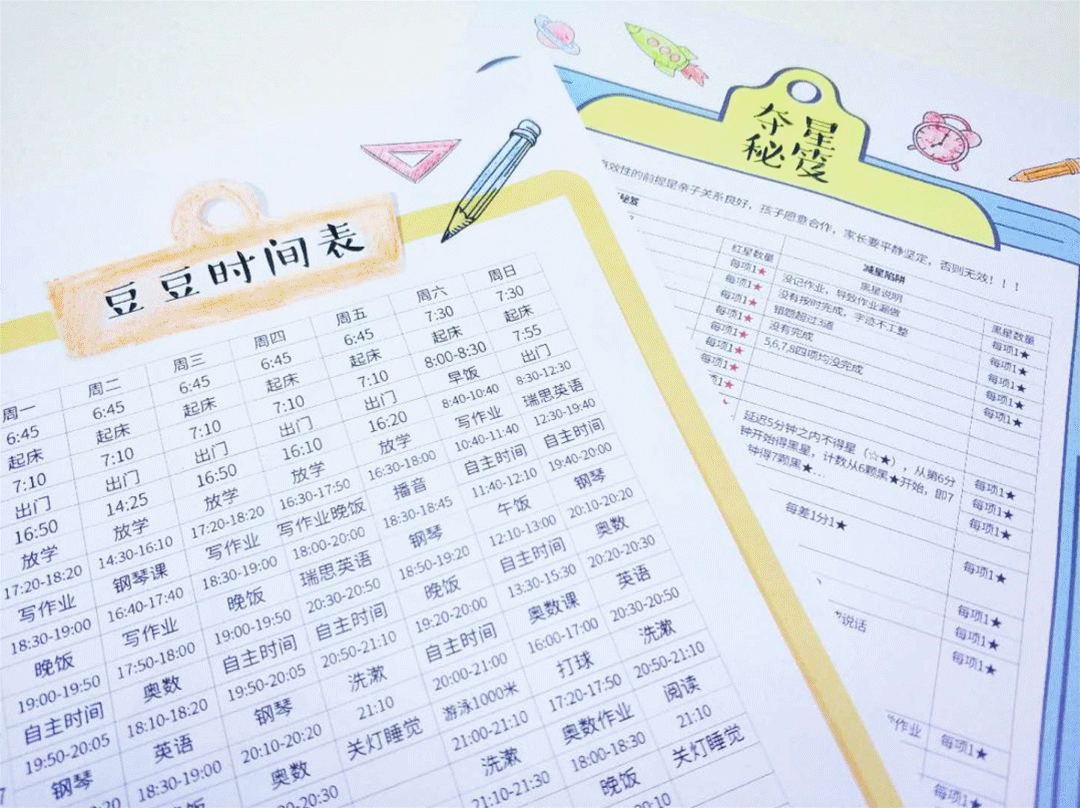 豆豆时间表
周一 周二 周三 周四 周五 周六 周日
6:45 6:45 6:45 6:45 6:45 7:30 7:30
起床 起床 起床 起床 起床 起床 起床
7:10 7:10 7:10 7:10 7:10 8:00-8:30 7:55
出门 出门 出门 出门 出门 早饭 出门
16:50 14:25 16:50 16:10 16:20 8:40-10:40 8:30-12:30
放学 放学 放学 放学 放学 写作业 瑞思英语
17:20-18:20 14:30-16:10 17:20-18:20 16:30-17:50 16:30-18:00 10:40-11:40 12:30-19:40
写作业 钢琴课 写作业 写作业晚饭 播音 自主时间 自主时间
18:30-19:00 16:40-17:40 18:30-19:00 18:00-20:00 18:30-18:45 11:40-12:10 19:40-20:00
晚饭 写作业 晚饭 瑞思英语 钢琴 午饭 钢琴
19:00-19:50 17:50-18:00 19:00-19:50 20:30-20:50 18:50-19:20 12:10-13:00 20:10-20:20
自主时间 奥数 自主时间 自主时间 晚饭 自主时间 奥数
19:50-20:05 18:10-18:20 19:50-20:05 20:50-21:10 19:20-20:00 13:30-15:30 20:20-20:30
钢琴 英语 钢琴 洗漱 自主时间 奥数课 英语
18:30-19:00 20:10-20:20 21:10 20:00-21:00 16:00-17:00 20:30-20:50
奥数 关灯睡觉 游泳1000米 打球 洗漱
21:00-21:10 17:20-17:50 20:50-21:10
洗漱 奥数作业 阅读
21:10-21:30 18:00-18:30 21:10
晚饭 关灯睡觉
夺星
秘笈
效性的前提是亲子关系良好，孩子愿意合作，家长要平静坚定，否则无效！！！
减星陷阱
红星数量 黑星说明 黑星数量
每项1★ 没记作业，导致作业漏做 每项1★
每项1★ 没有按时完成，字迹不工整 每项1★
每项1★ 错题超过3道 每项1★
每项1★ 没有完成 每项1★
每项1★ 5,6,7,8四项均没完成 每项1★
每项1★
每项1★
延迟5分钟之内不得星（☆★），从第6分
钟开始得黑星，计数从6颗黑★开始，即7
钟得7颗黑★..
每项1★
每项1★
每项1★
每差1分1★
每项1★
说话
每项1★
每项1★
每项1★
作业 每项1★
每项1★